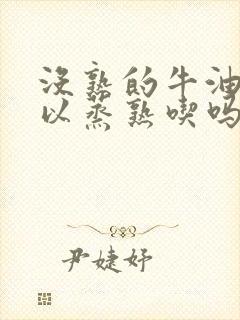 没熟的牛油
以蒸熟喫吗
尹婕妤